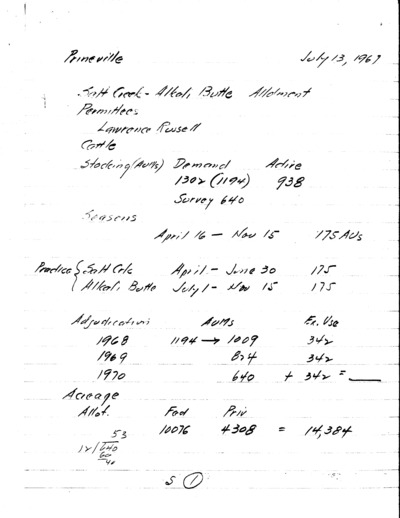 Prineville July 13, 1967
Salt Creek - Alkali Butte Allotment
Permittees
Lawrence Russell
Cattle
Stocking (AUMs) Demand Active
1302 (1194) 938
Survey 640
Seasons
April 16 - Nov 15 175 AUs
Practice { Salt Crk April - June 30 175
{ Alkali Butte July 1 - Nov 15 175
Adjudication AUMs Ex. Use
1968 1194 → 1009 342
1969 824 342
1970 640 + 342 = ____
Acreage
Allot. Fed Priv
10076 4308 = 14,384
53
12/640
60
40
S 1